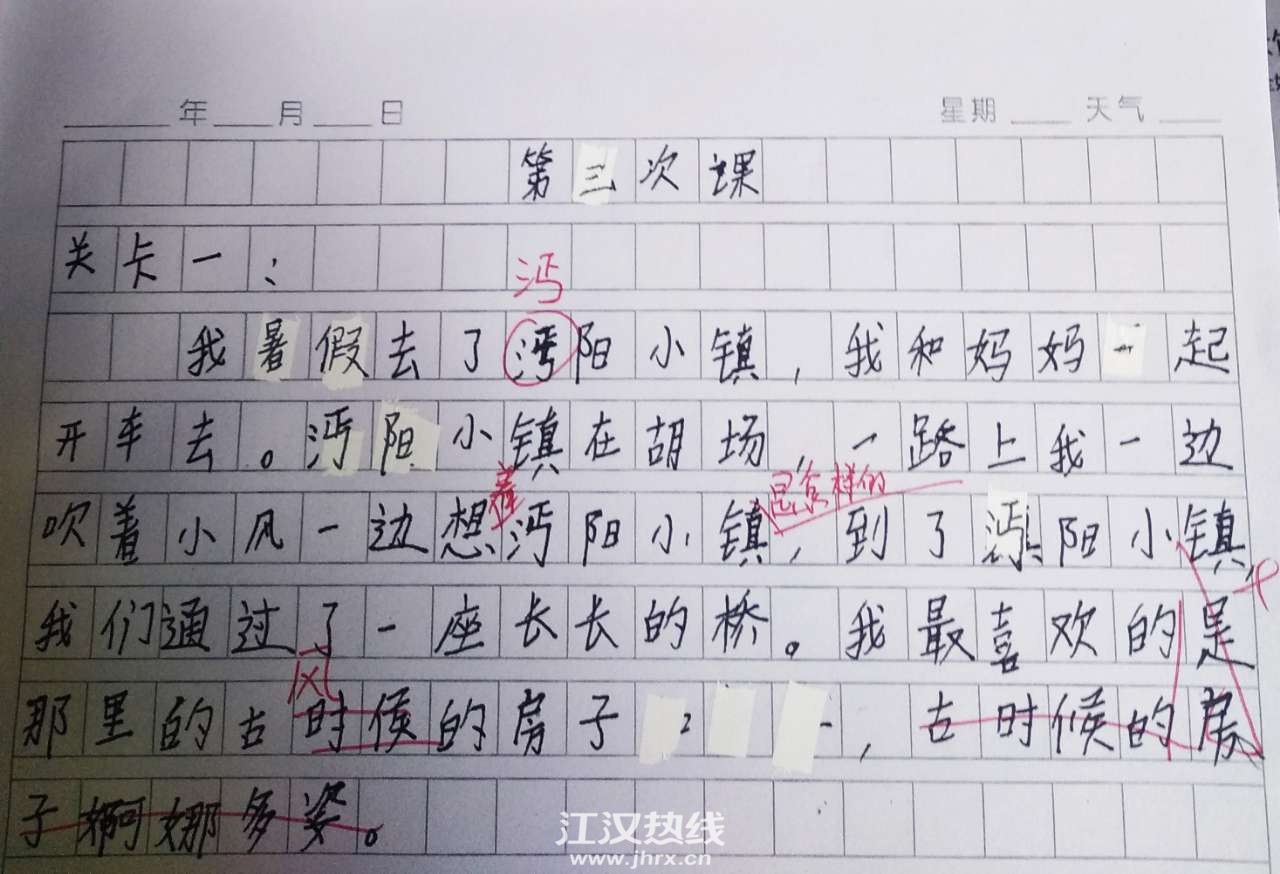 年 月 日 星期 天气
第三次课
关卡一：
沔
我暑假去了沔阳小镇，我和妈妈一起
开车去。沔阳小镇在胡场，一路上我一边
着 是怎样的
吹着小风一边想沔阳小镇，到了沔阳小镇，
我们通过了一座长长的桥。我最喜欢的是
风
那里的古时候的房子，古时候的房
子婀娜多姿。
江汉热线
www.jhrx.cn